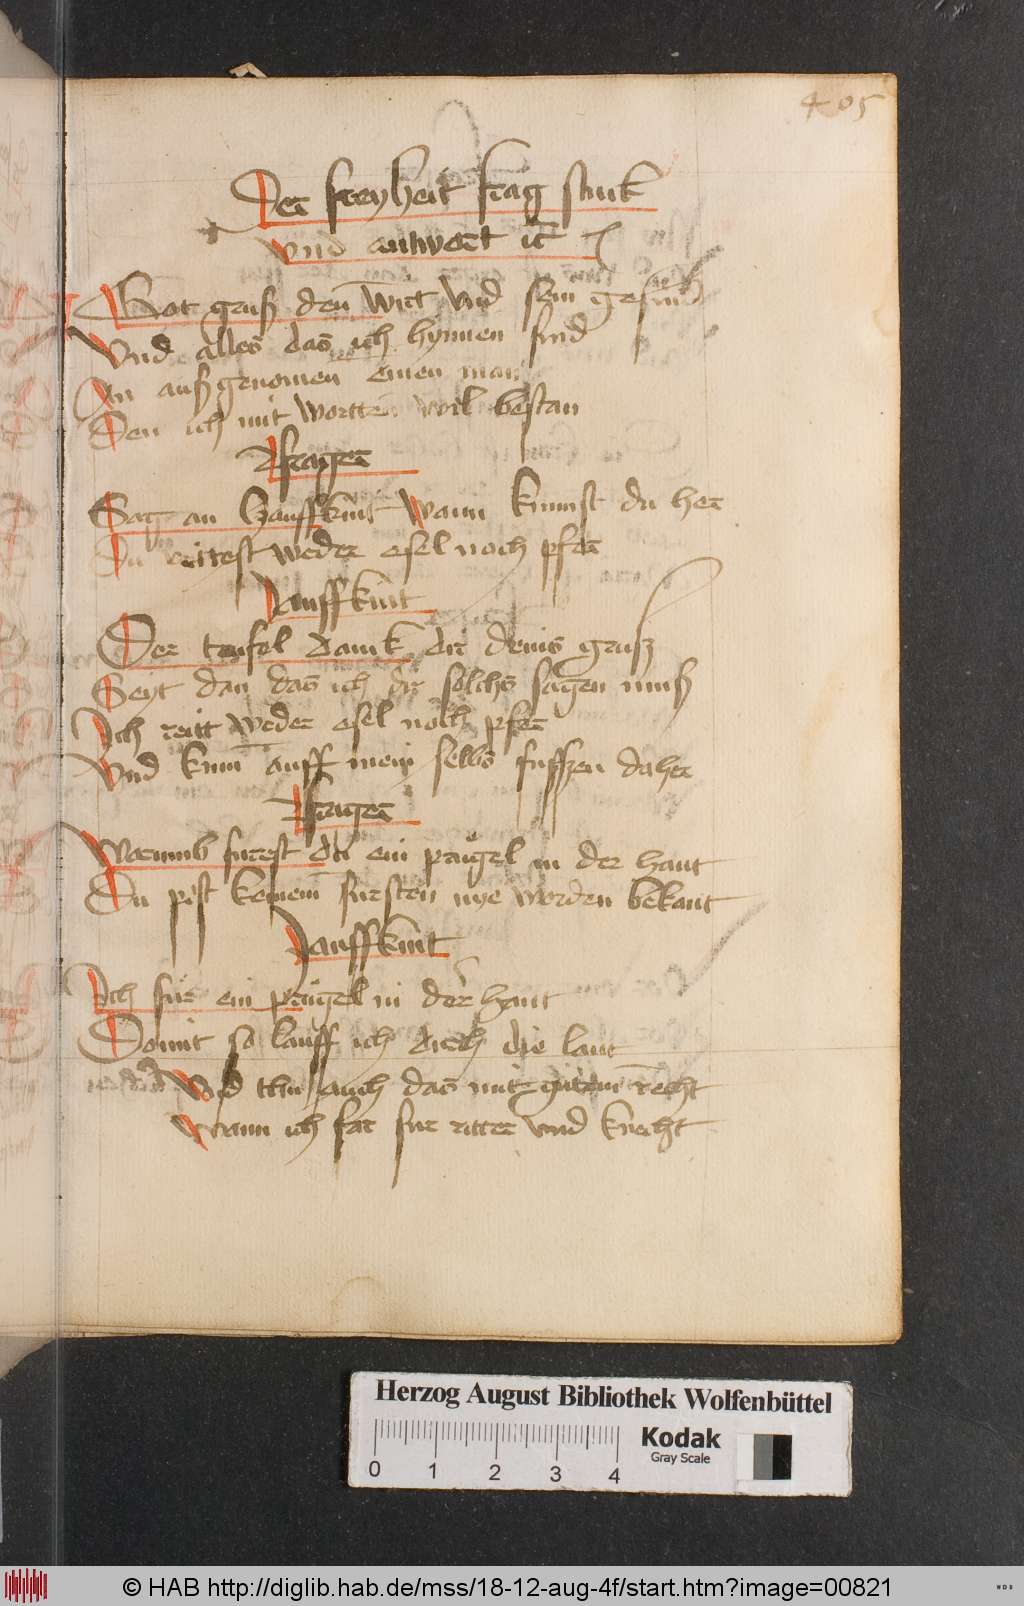 405
Der freyheit frag stuck
vnd antwort ic
Got gruß den wirt vnd sein gesind
Vnd alles das ich hynnen find
An außgenomen einen man
Den ich mit wortten wil bestan
Frager
Sag an lauffkint wann kumst du her
Du reittest weder esel noch pfer
lauffkint
Der teufel danck dir deins gruß
Seyt dan das ich dir solchs sagen muß
Ich reitt weder esel noch pfer
Vnd kum auff mein selbs fussen daher
Frager
Warumb furest du ein prugel in der hant
Du pist keinem fursten nye worden bekant
lauffkint
Ich fur ein prugel in der hant
Domit so lauff ich durch die lant
Vnd thu auch das mit gutem recht
Wann ich far fur ritter vnd knecht
Herzog August Bibliothek Wolfenbüttel
Kodak
Gray Scale
0 1 2 3 4
© HAB http://diglib.hab.de/mss/18-12-aug-4f/start.htm?image=00821